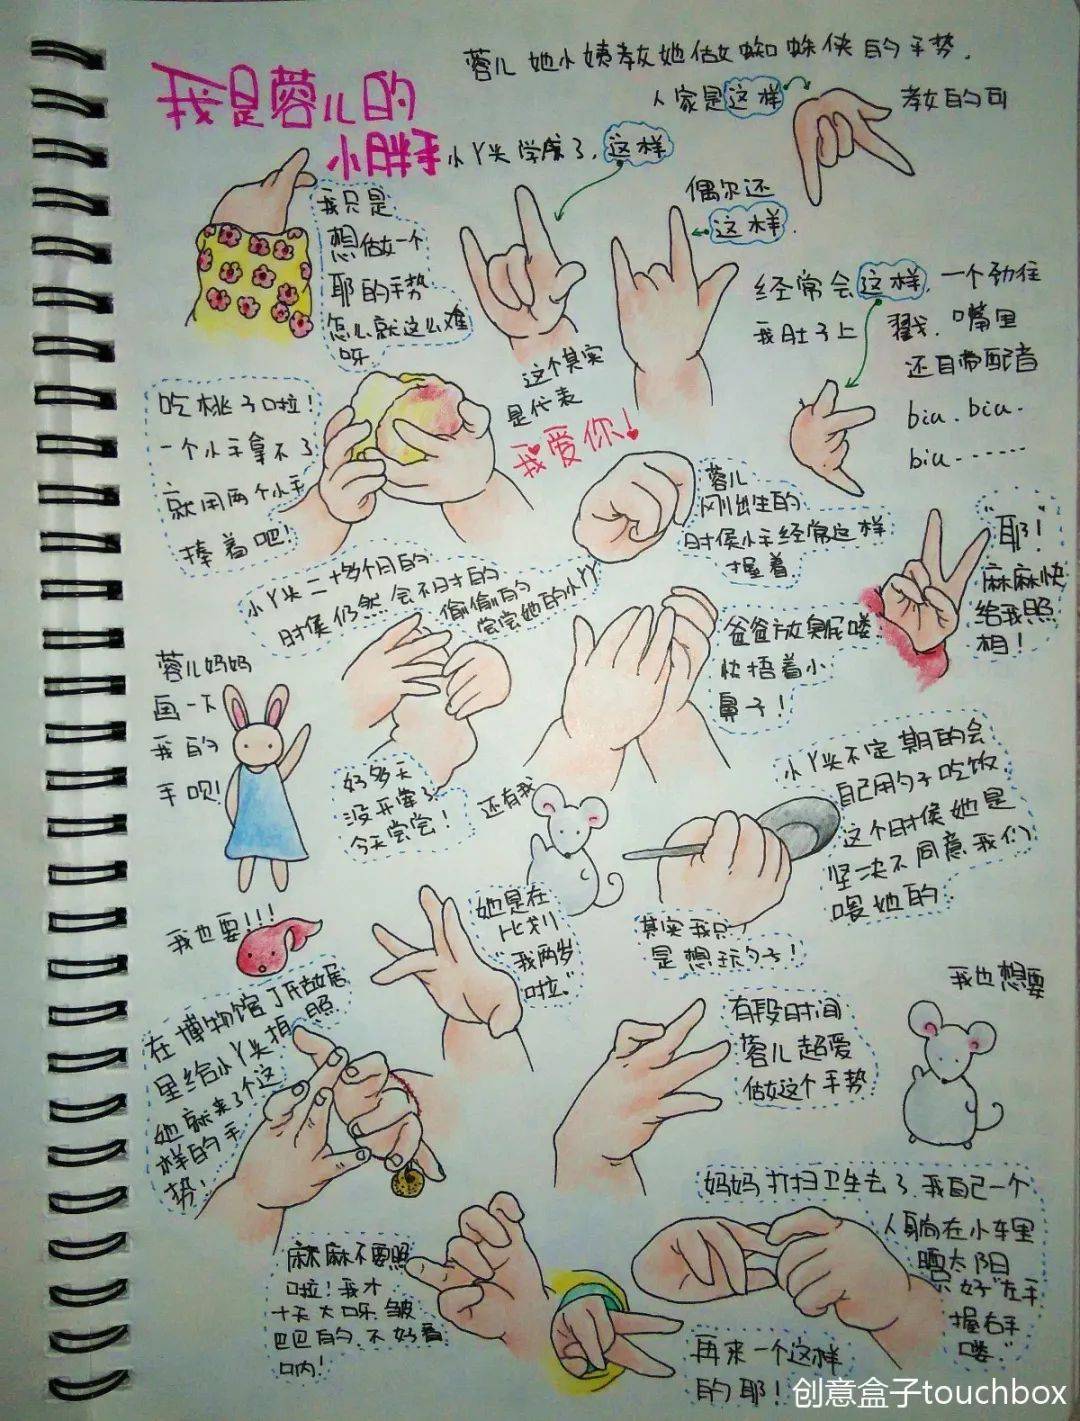 我是蓉儿的
小胖手
蓉儿她小姨教她做蜘蛛侠的手势.
人家是这样
教的可
小丫头学废了,这样
偶尔还
这样.
经常会这样,一个劲往
我肚子上戳.嘴里
还自带配音
biu.biu.
biu……
我只是
想做一个
耶的手势
怎么就这么难
呀
这个其实
是代表
我爱你!
吃桃子啦!
一个小手拿不了
就用两个小手
捧着吧!
蓉儿
刚出生的
时候小手经常这样
握着
"耶!
麻麻快
给我照
相!
小丫头二十多个月的
时候仍然会不时的
偷偷的
尝尝她的小丫
爸爸放臭屁喽
快捂着小
鼻子!
蓉儿妈妈
画一下
我的
手呗!
好多天
没开荤了
今天尝尝!
还有我
小丫头不定期的会
自己用勺子吃饭
这个时候她是
坚决不同意我们
喂她的
其实我只
是想玩勺子!
我也要!!!
她是在
比划
"我两岁
啦."
我也想要
在博物馆丁氏故居
里给小丫头拍照
她就来了个这
样的手
势!
有段时间
蓉儿超爱
做这个手势
妈妈打扫卫生去了,我自己一个
人躺在小车里
晒太阳
只好"左手
握右手
喽"
麻麻不要照
啦!我才
十天大呀.皱
巴巴的.不好看
呐!
再来一个这样
的耶!
创意盒子touchbox